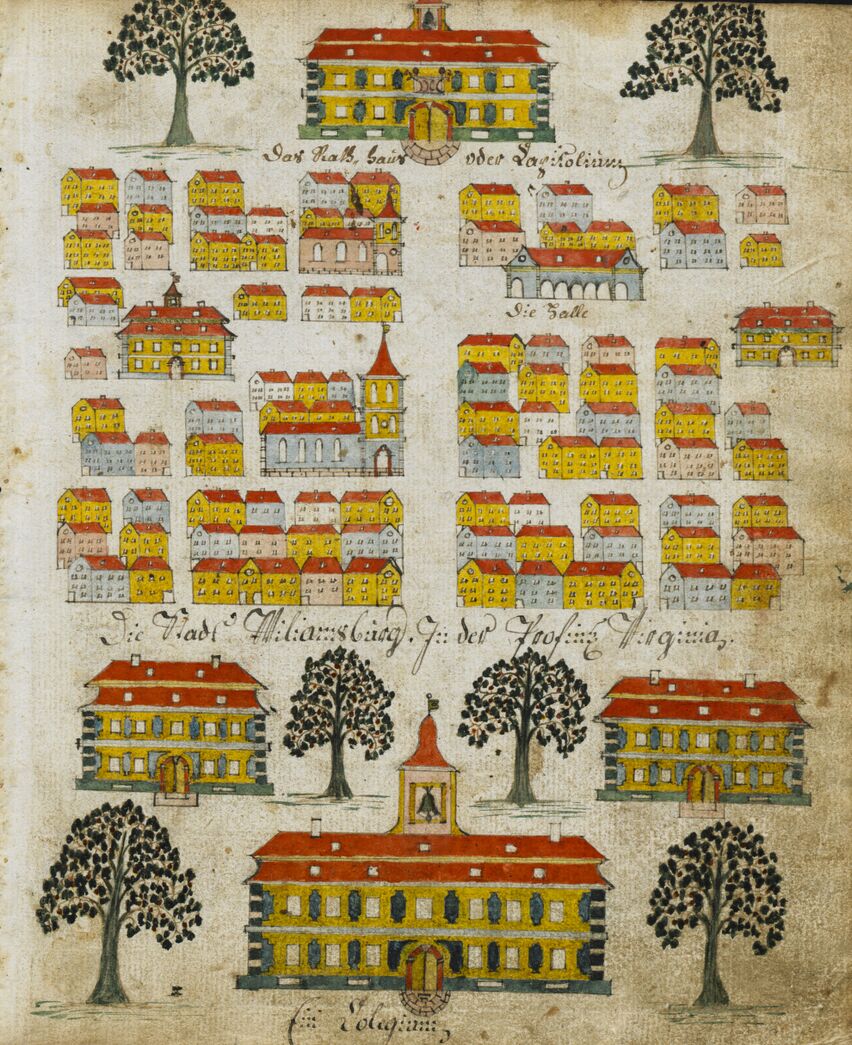 Das Rath, haus oder Capitolium
Die Halle
Die Stadt Wiliamsburg. In der Profintz Virginia.
Ein Colegium